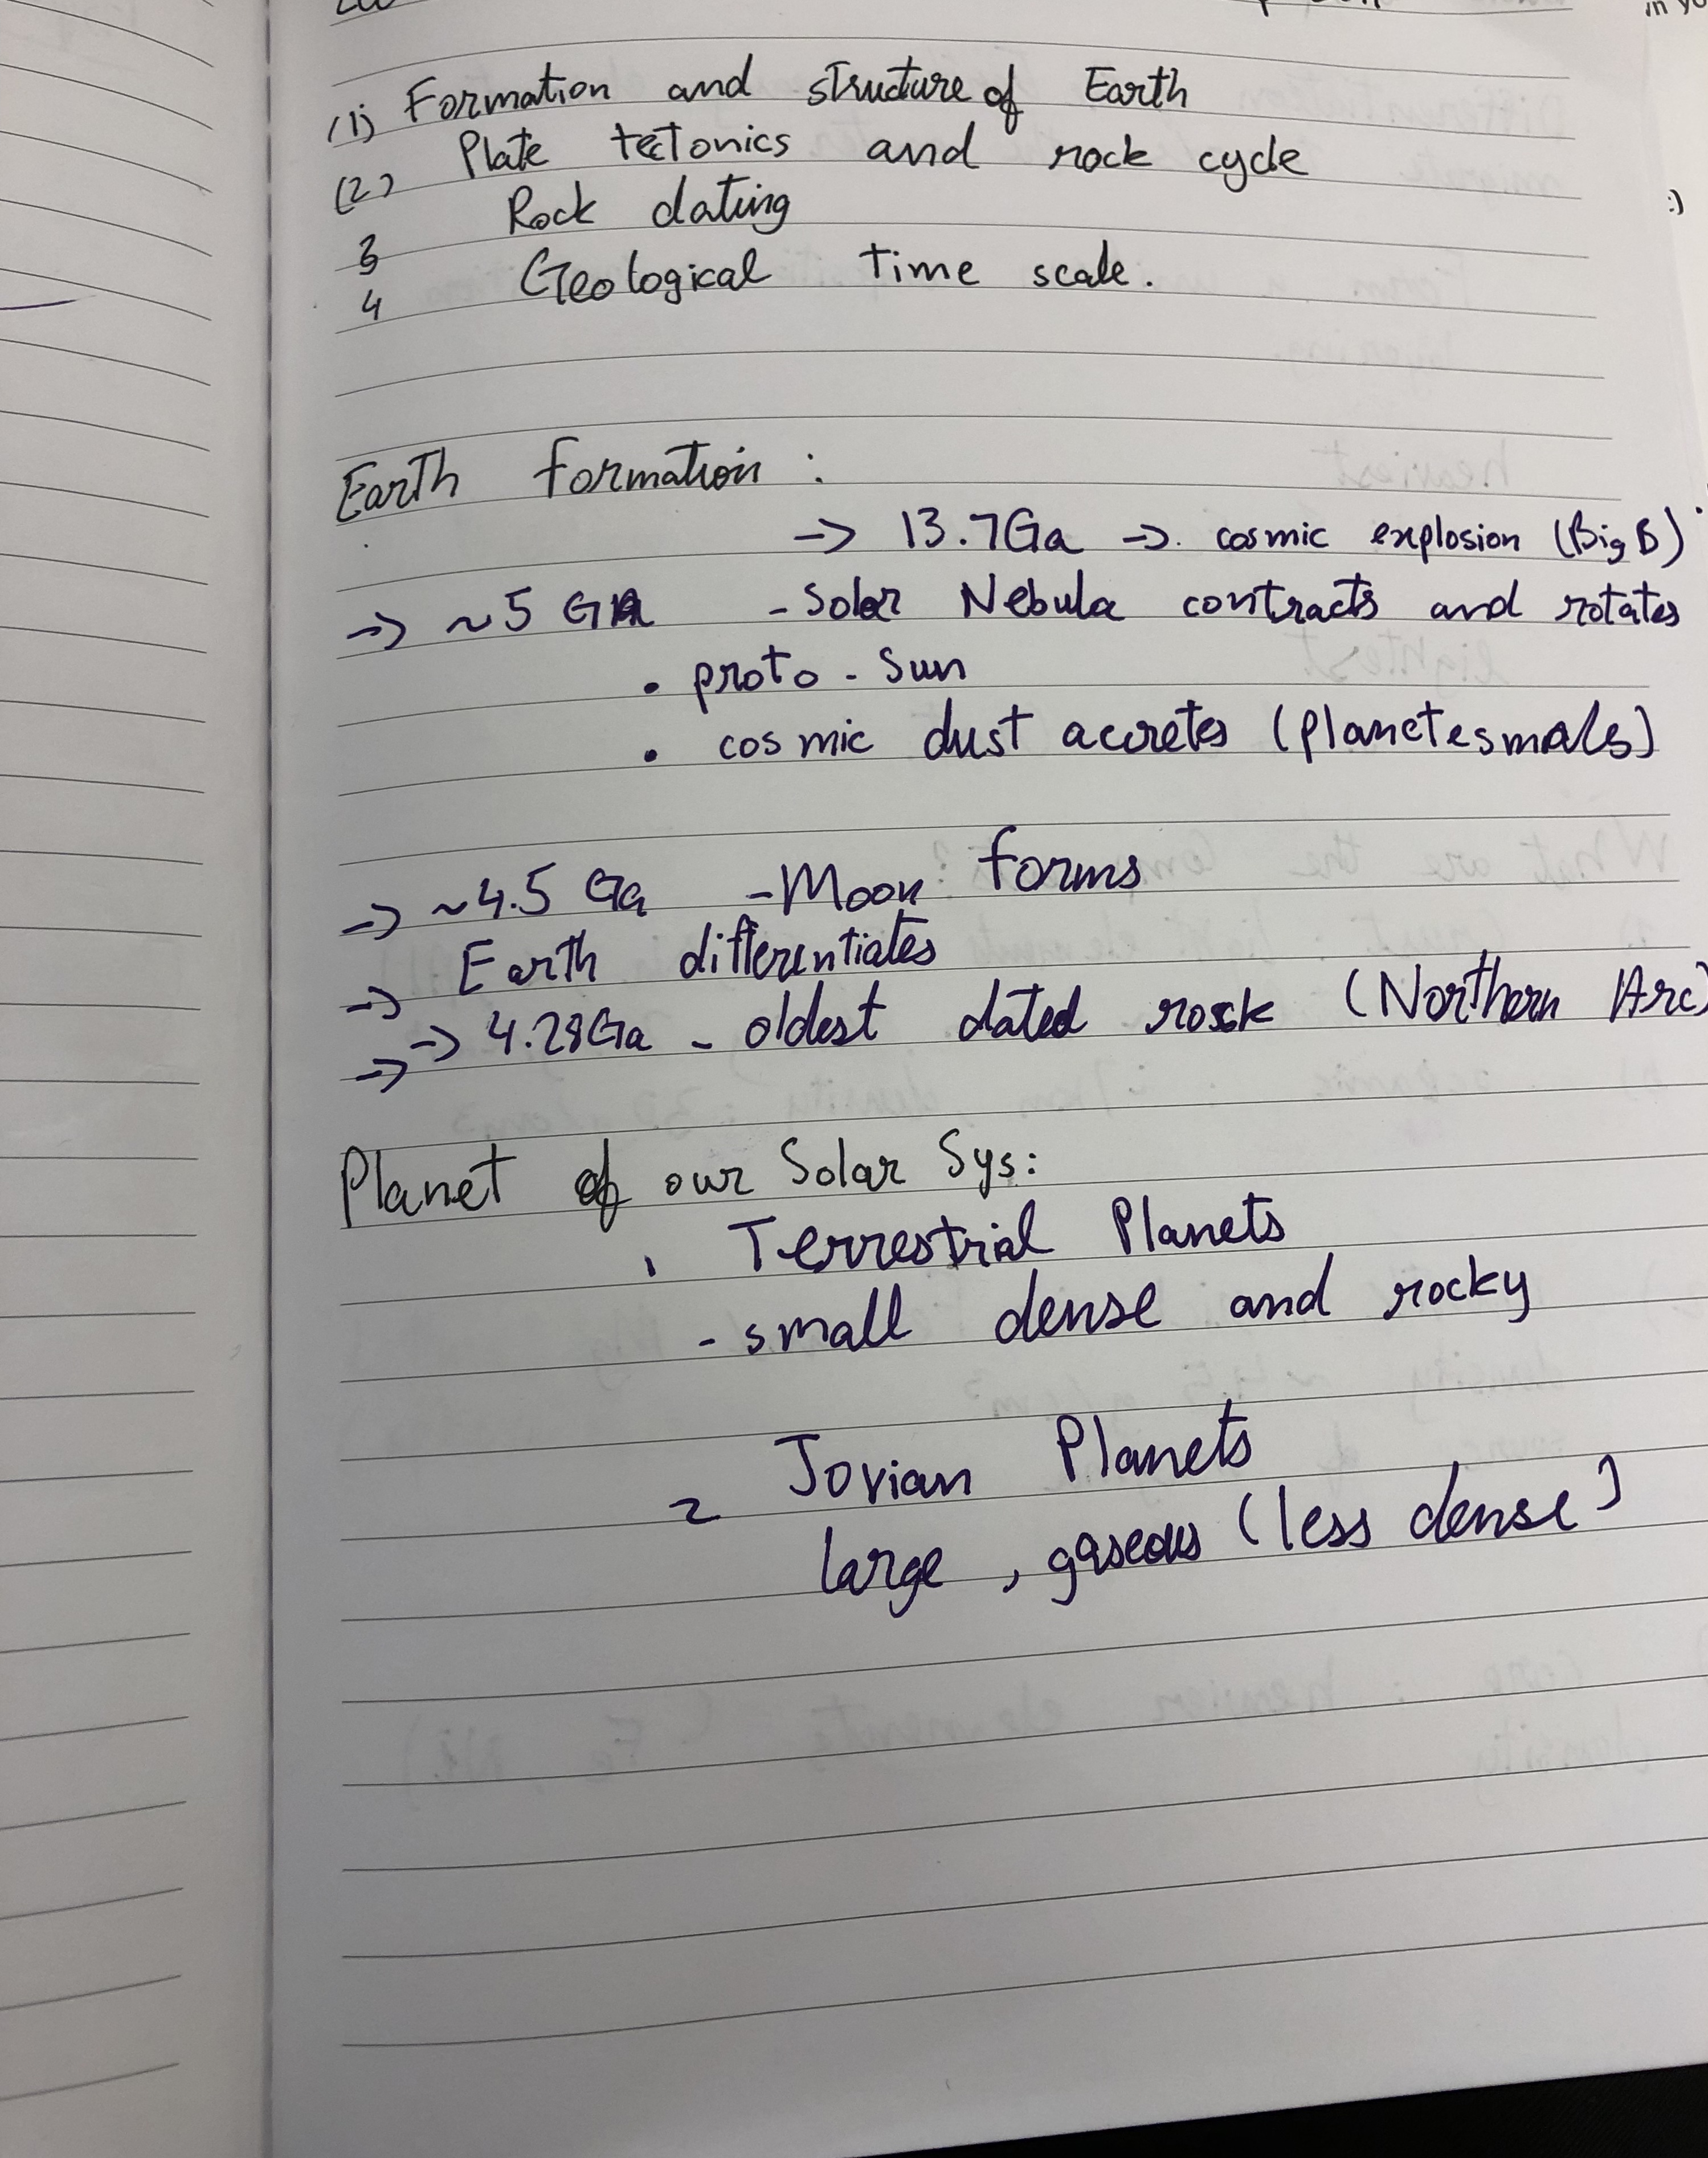 (1) Formation and structure of Earth
(2) Plate tectonics and rock cycle
3 Rock dating
4 Geological time scale.
:)
Earth formation :
-> 13.7Ga -> cosmic explosion (Big B)
-> ~5 Ga - Solar Nebula contracts and rotates
• proto - sun
• cosmic dust accretes (planetesmals)
-> ~4.5 Ga - Moon forms
-> Earth differentiates
-> -> 4.28Ga - oldest dated rock (Northern Arc)
Planet of our Solar Sys:
1 Terrestrial Planets
- small dense and rocky
2 Jovian Planets
large , gaseous (less dense)